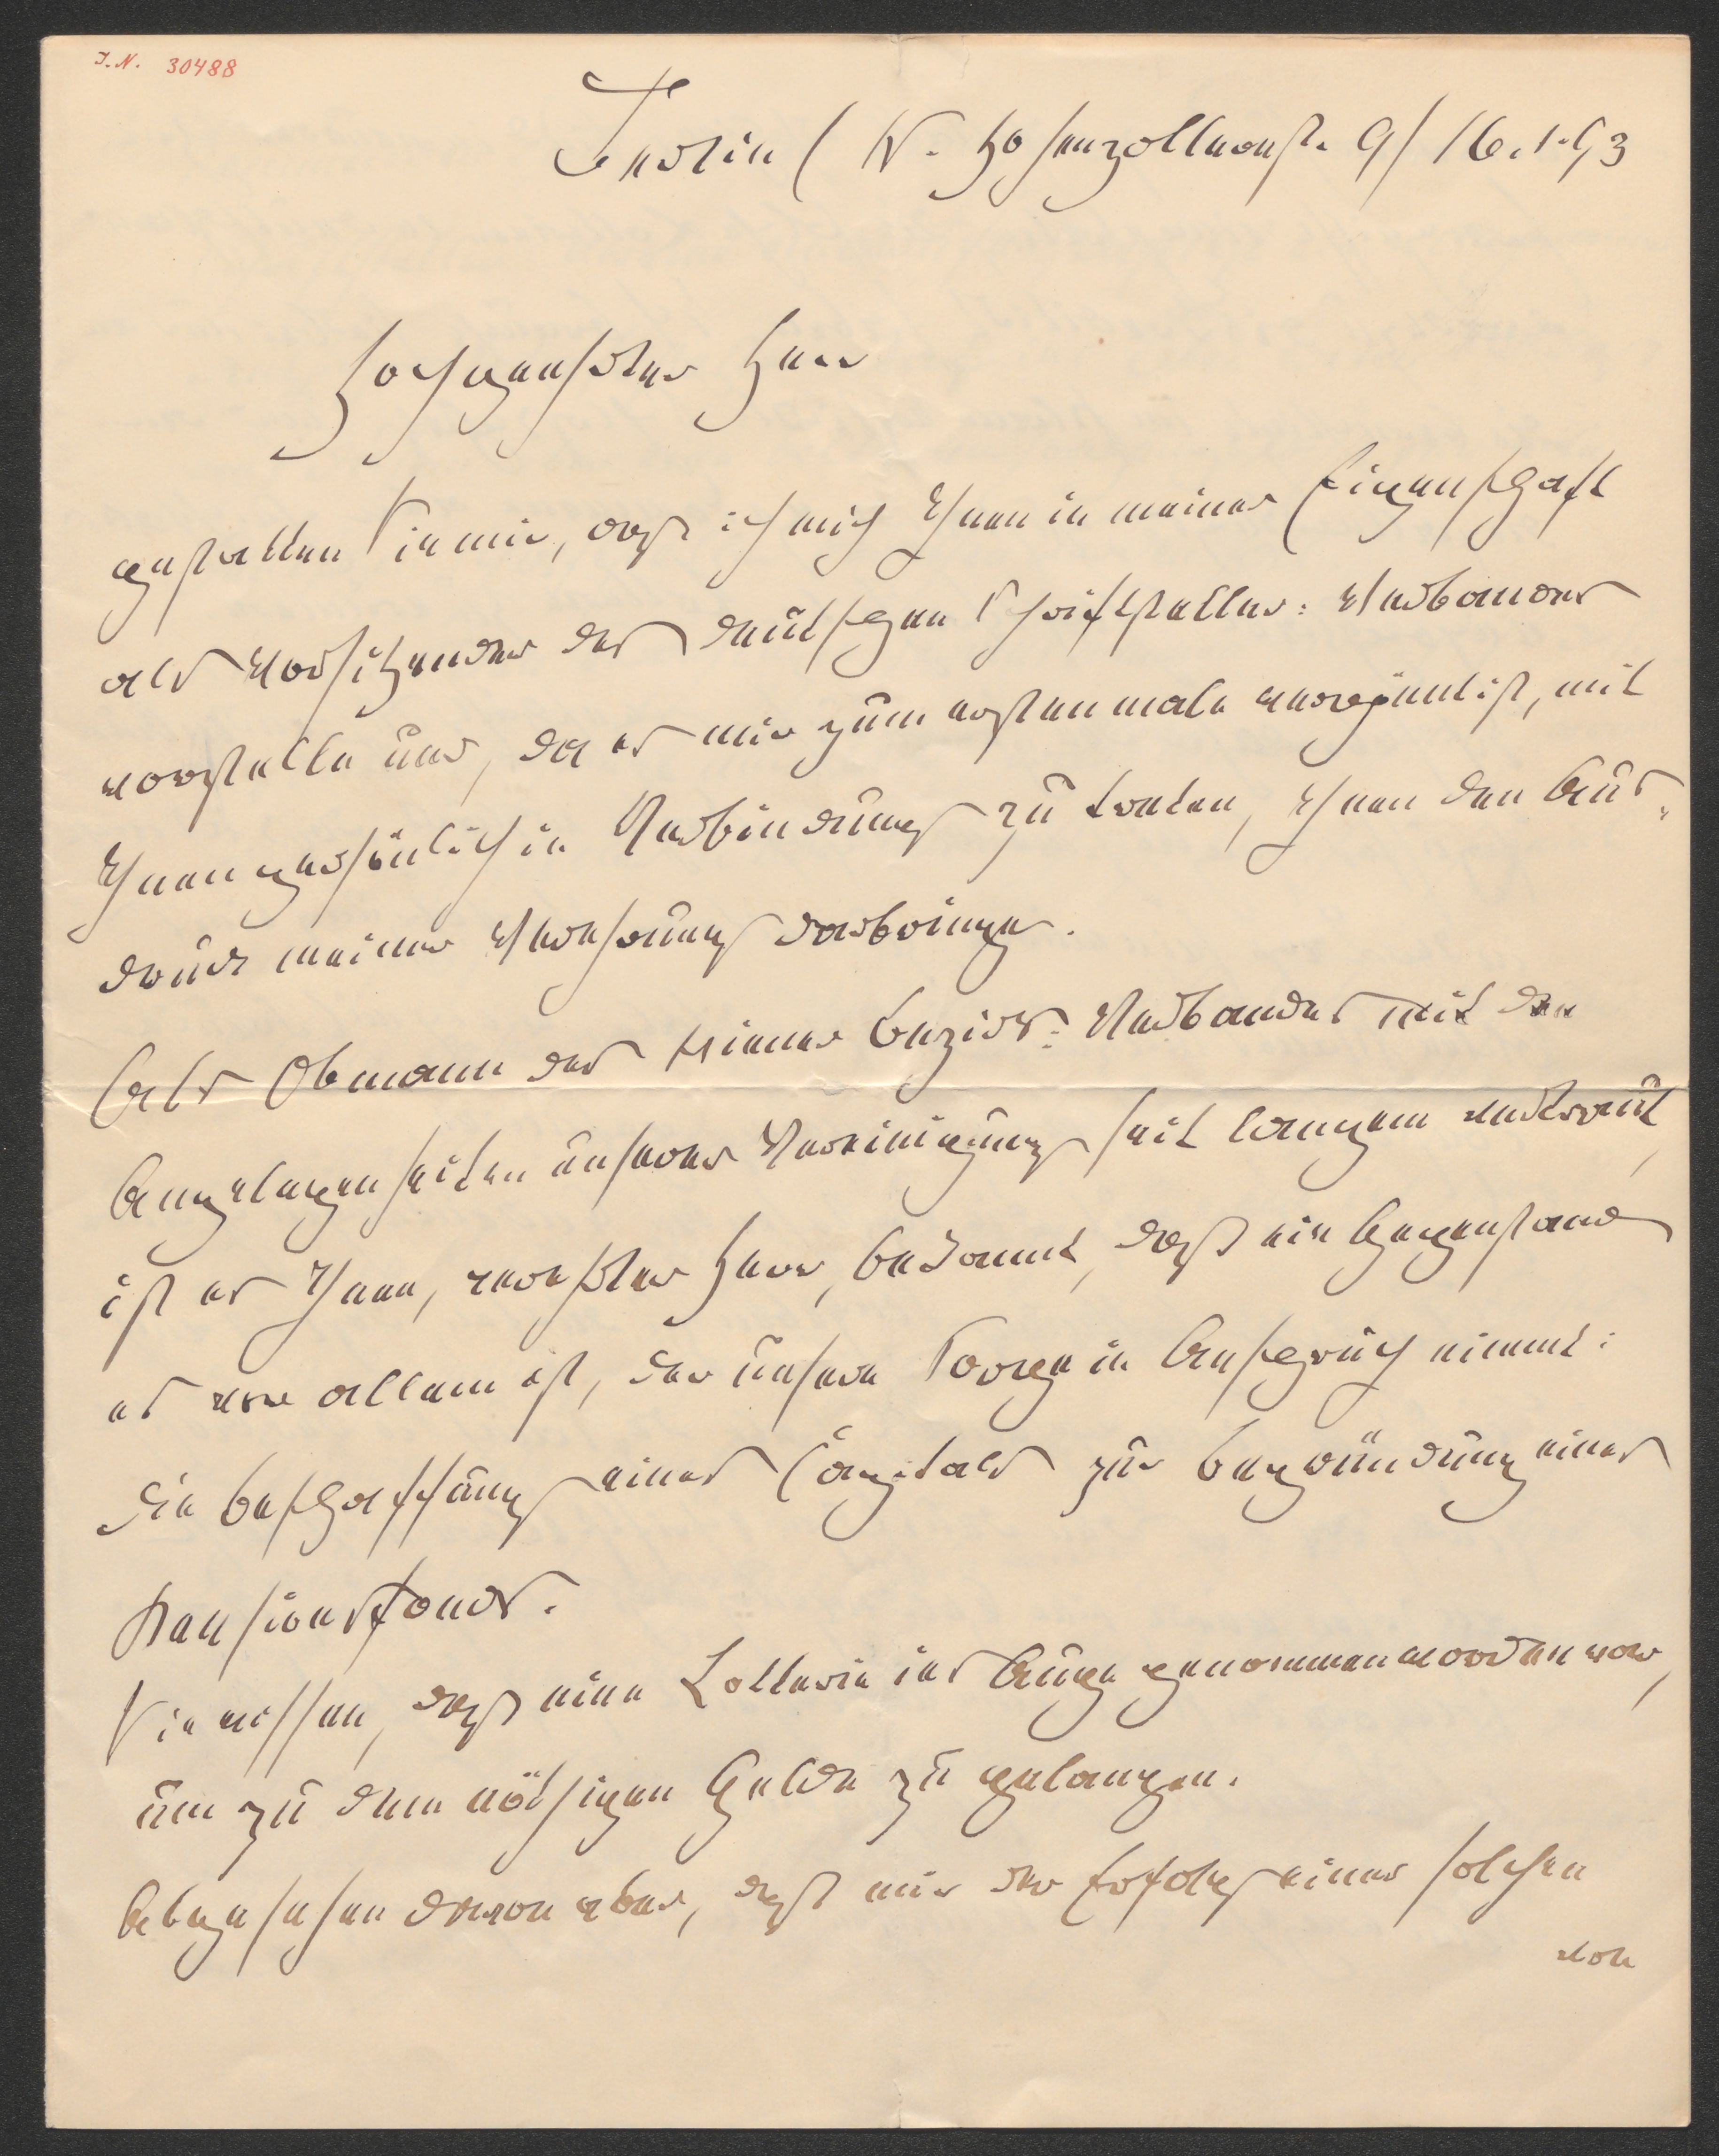 I.N. 30488
Berlin (W. Hohenzollernst. 9) 16.1.93
Hochgeehrter Herr
gestatten Sie mir, daß ich mich Ihnen in meiner Eigenschaft
als Vorsitzender des deutschen Schriftsteller: Verbandes
vorstelle und, da es mir zum erstenmale vergönnt ist, mit
Ihnen persönlich in Verbindung zu treten, Ihnen den Aus-
druck meiner Verehrung darbringe.
Als Obmann des Wiener Bezirks: Verbandes mit den
Angelegenheiten unserer Vereinigung seit langem vertraut,
ist es Ihnen, verehrter Herr, bekannt, daß ein Gegenstand
es vor allem ist, der unsere Sorge in Anspruch nimmt:
die Beschaffung eines Capitals zur Begründung eines
Pensionsfonds.
Sie wissen, daß eine Lotterie ins Auge genommen worden war,
um zu dem nöthigen Gelde zu gelangen.
Abgesehen davon aber, daß mir der Erfolg einer solchen
von